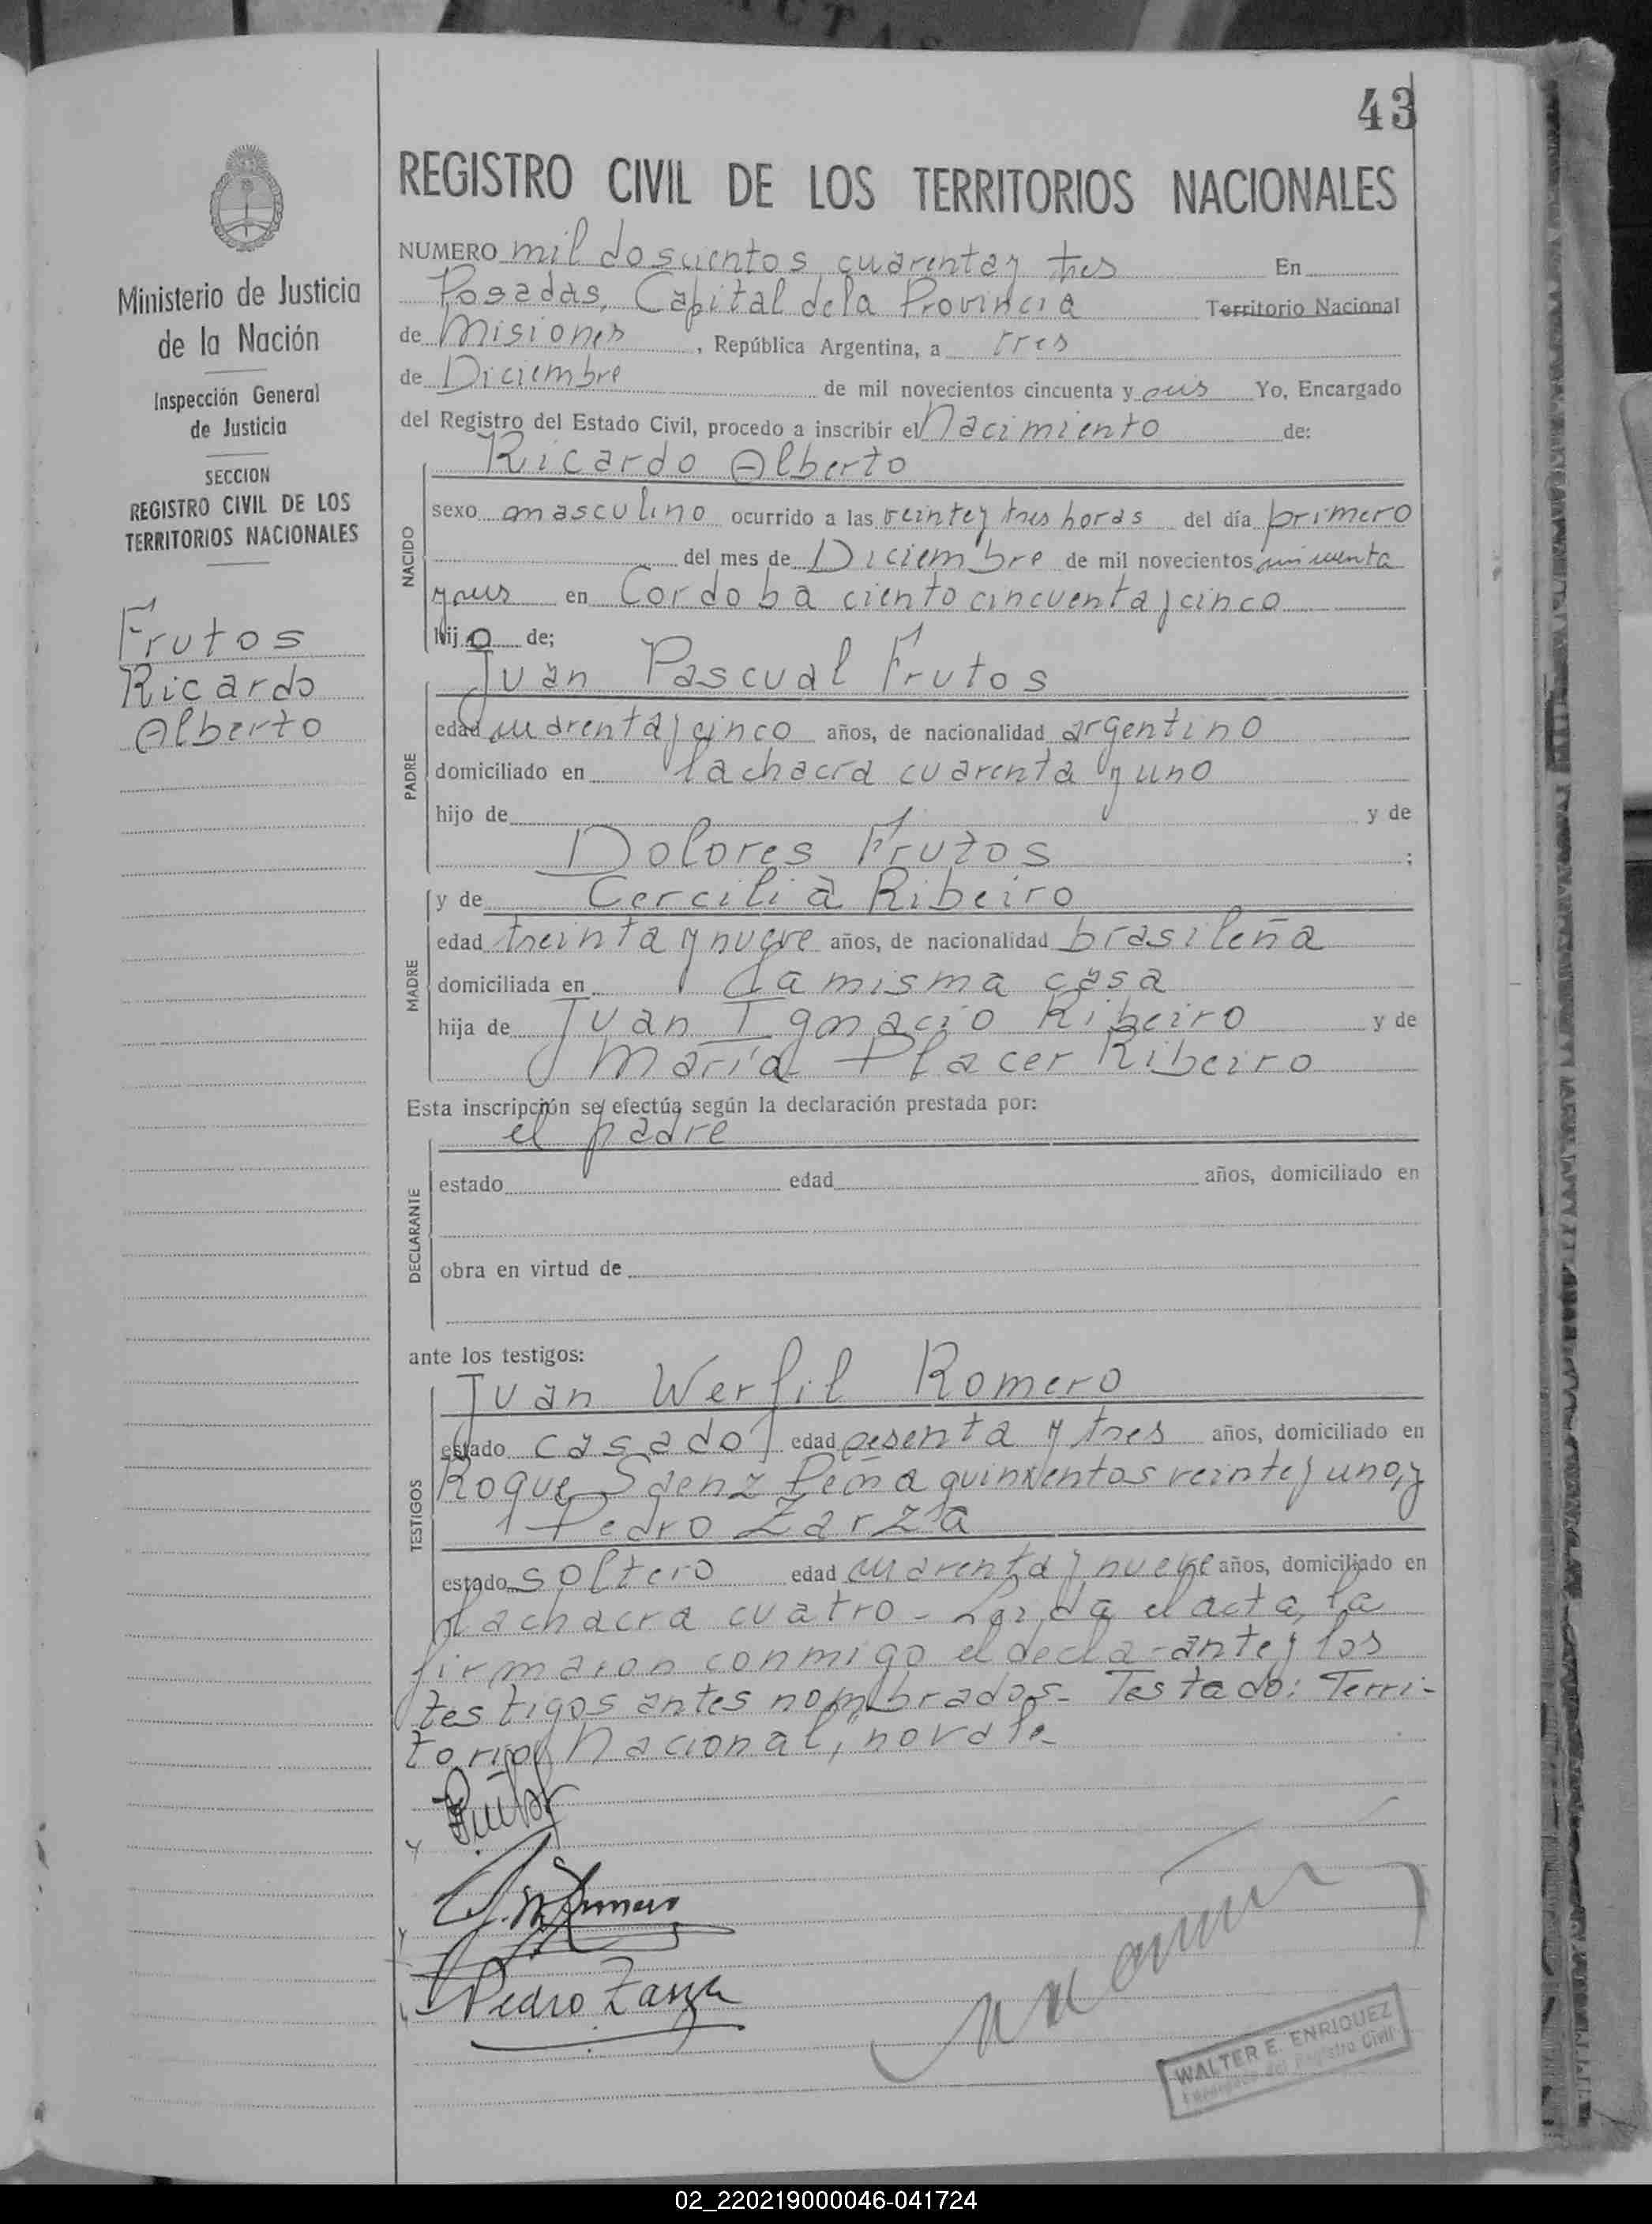 ACTAS
43
Ministerio de Justicia
de la Nación
Inspección General
de Justicia
SECCION
REGISTRO CIVIL DE LOS
TERRITORIOS NACIONALES
Frutos
Ricardo
Alberto
REGISTRO CIVIL DE LOS TERRITORIOS NACIONALES
NUMERO mil doscientos cuarenta y tres En
Posadas, Capital de la Provincia Territorio Nacional
de Misiones, República Argentina, a tres
de Diciembre de mil novecientos cincuenta y seis Yo, Encargado
del Registro del Estado Civil, procedo a inscribir el Nacimiento de:
Ricardo Alberto
NACIDO
sexo masculino ocurrido a las veinte y tres horas del día primero
del mes de Diciembre de mil novecientos cincuenta
y seis en Cordoba ciento cincuenta y cinco
hijo de;
Juan Pascual Frutos
PADRE
edad cuarenta y cinco años, de nacionalidad argentino
domiciliado en la chacra cuarenta y uno
hijo de y de
Dolores Frutos ;
MADRE
y de Cercilia Ribeiro
edad treinta y nueve años, de nacionalidad brasileña
domiciliada en la misma casa
hija de Juan Ignacio Ribeiro y de
María Placer Ribeiro
Esta inscripción se efectúa según la declaración prestada por:
el padre
DECLARANTE
estado edad años, domiciliado en
obra en virtud de
ante los testigos:
Juan Werfil Romero
TESTIGOS
estado casado edad sesenta y tres años, domiciliado en
Roque Saenz Peña quinientos veinte y uno, y
Pedro Zarza
estado soltero edad cuarenta y nueve años, domiciliado en
la chacra cuatro - Leida el acta, la
firmaron conmigo el declarante y los
testigos antes nombrados - Testado: Terri-
torio Nacional, no vale
J. W. Romero
Pedro Zarza
WALTER E. ENRIQUEZ
Encargado del Registro Civil
02_220219000046-041724